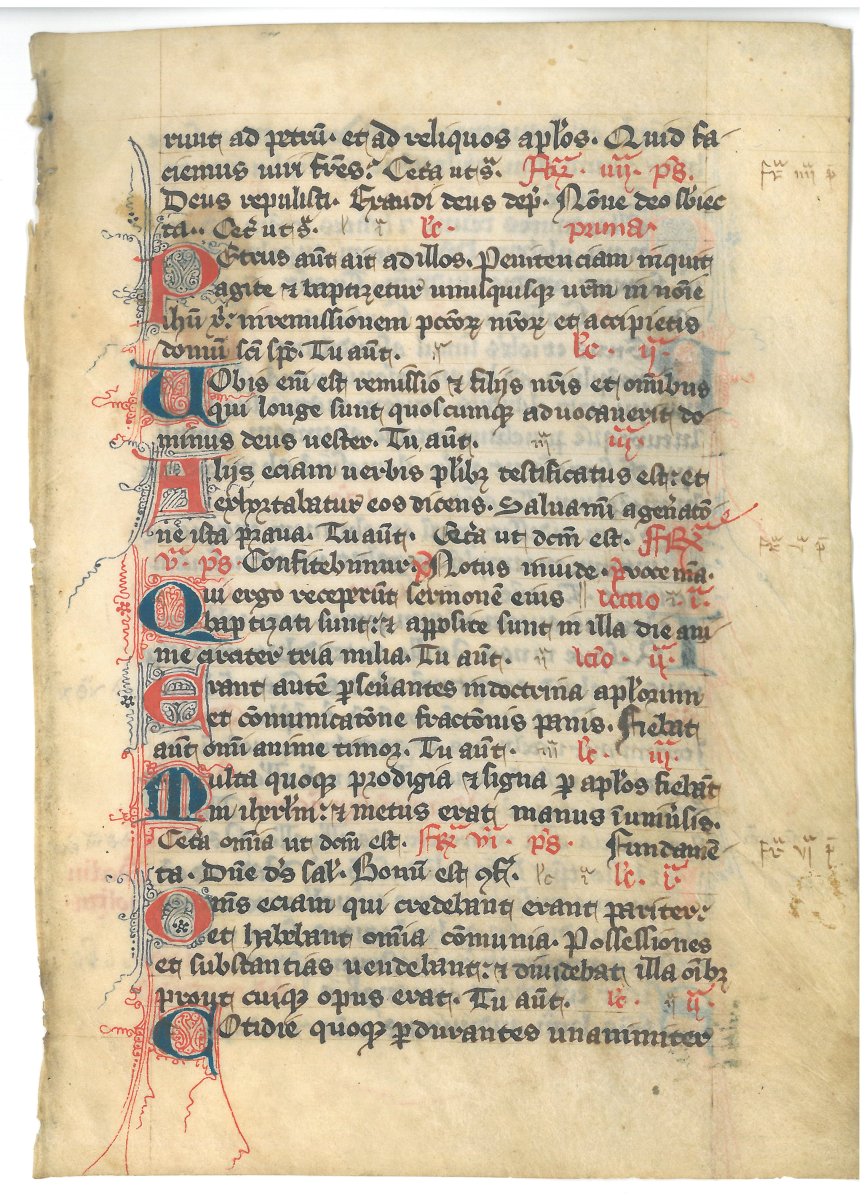 runt ad petrū· et ad reliquos apl̄os· Quid fa-
ciemus uiri fr̄es: Cet̄a ut s̄. Fr̄a · iiii · p̄s.
Deus repulisti· Exaudi deus dep̄· Nōne deo sb̄iec
ta·· Cet̄ ut s̄· lc̄· prima·
Etrus aūt ait ad illos. Penitenciam inquit
P agite ⁊ baptizetur unusquisqꝫ ur̄m in noīe
ihū x̄: in remissionem pccōꝝ nr̄oꝝ et accipietis
donuī sc̄i sp̄c· Tu aūt. lc̄ · ij·
Uobis em̄ est remissio ⁊ filijs ur̄is et om̄ibus
qui longe sunt quoscumqꝫ aduocauerit do-
minus deus uester. Tu aūt. iij·
Alijs eciam uerbis pl̄ibꝫ testificatus est: et
exhortabatur eos dicens· Saluami a gen̄atō
ne ista praua. Tu aūt· Cet̄a ut dcm̄ est. Fr̄a
v· p̄s· Confitebimur· Notus in iude· Voce m̄a·
Qui ergo receper̄ūt sermonē eius lectio · i·
baptizati sunt: ⁊ apposite sunt in illa die ani-
me circiter tria milia. Tu aūt· lctō · ij·
Erant autē pꝑseūantes in doctrina apl̄orum
et cōmunicatōne fractōnis panis. Fiebat
aūt om̄i anime timor. Tu aūt· lc̄ · iij·
Multa quoqꝫ prodigia ⁊ signa ꝑ apl̄os fiebāt
in ihrl̄m: ⁊ metus erat manus ī uniūsis·
Cet̄a om̄ia ut dcm̄ est. Fr̄a vi· p̄s· Fundamē
ta· Dn̄e d̄s sal̄· Bonū est ꝯf̄· lc̄ · i·
Om̄s eciam qui credebant erant pariter:
et habebant om̄ia cōmunia· Possessiones
et substantias uendebant: ⁊ diuidebāt illa oīb̄ꝫ
prout cuiqꝫ opus erat· Tu aūt· lc̄ · ij·
Cotidie quoqꝫ ꝑdurantes unanimiter